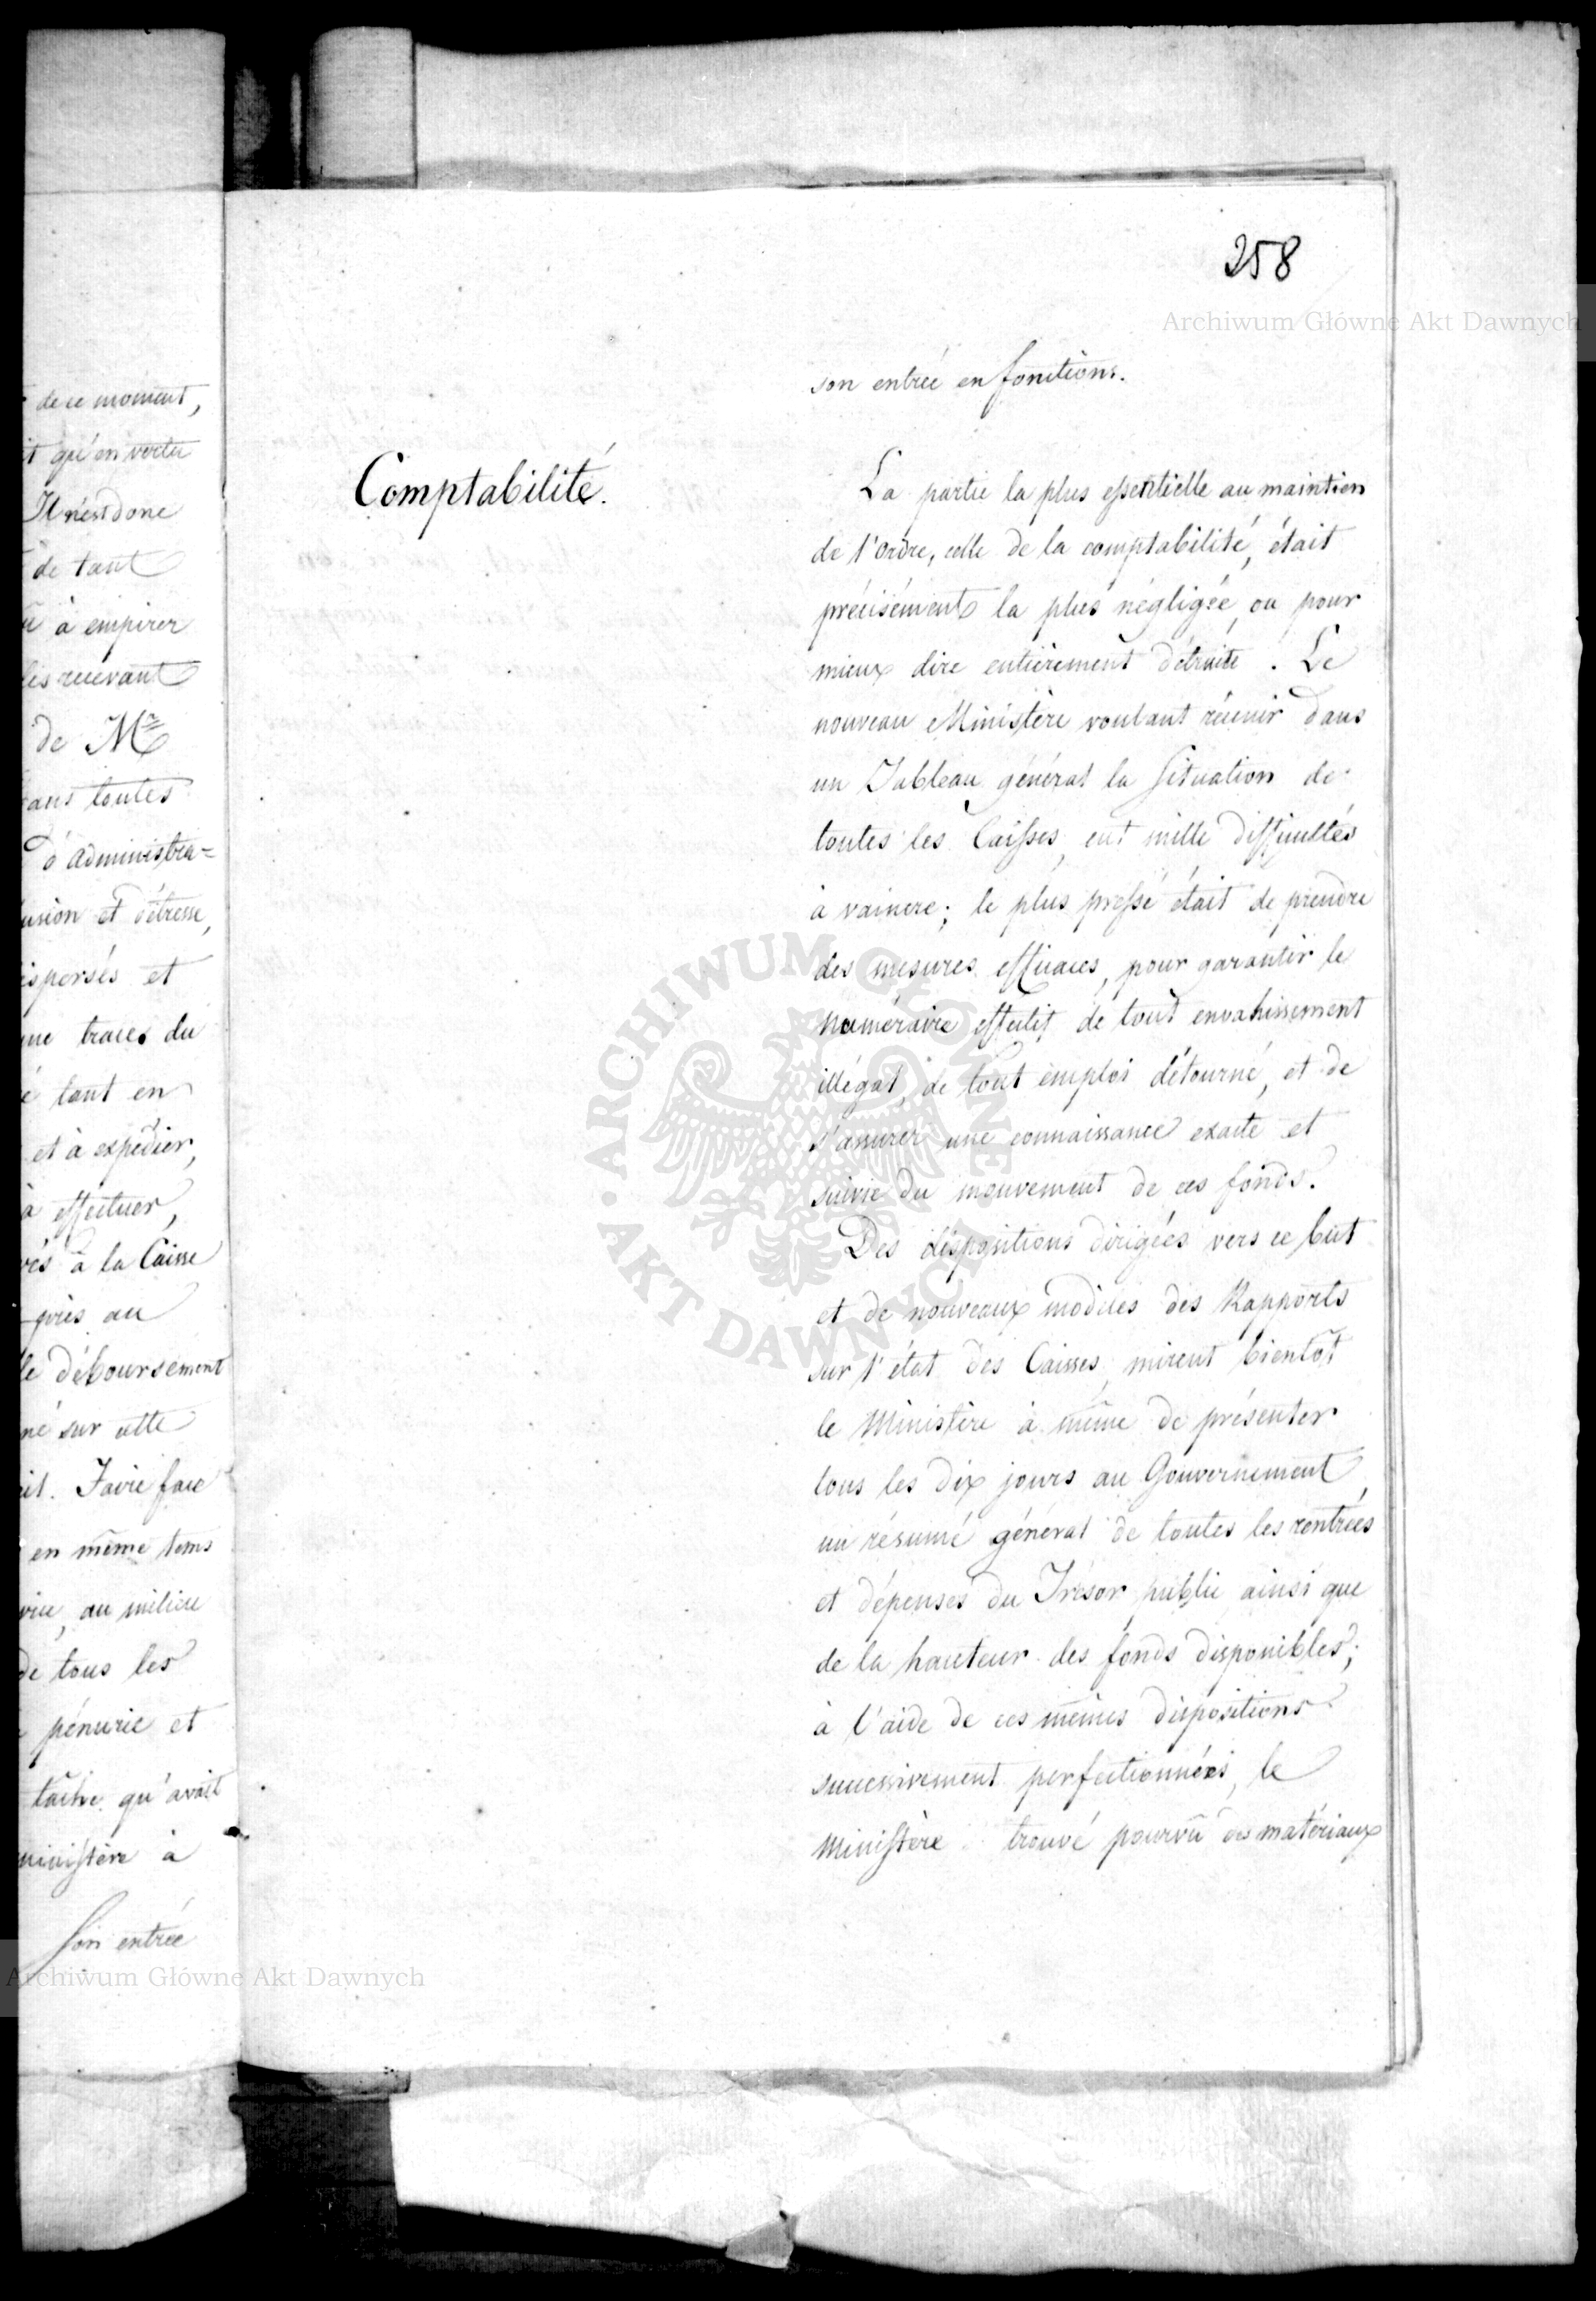 de ce moment,
qu'en vertu
Il n'est donc
de tant
à empirer
les recevant
de Mr
toutes
d'administra=
usion et détresse,
ispersés et
traces du
tant en
et à expédier,
à effectuer,
à la Caisse
près au
le déboursement
sur cette
Faire face
en même tems
au milieu
de tous les
pénurie et
tâche qu'avait
ministère à
Son entrée
258
Archiwum Główne Akt Dawnych
son entrée en fonctions.
Comptabilité.
La partie la plus essentielle au maintien
de l'Ordre, celle de la comptabilité, était
précisément la plus négligée, ou pour
mieux dire entièrement détruite. Le
nouveau Ministère voulant réunir dans
un Tableau général la Situation de
toutes les Caisses, eut mille difficultés
à vaincre; le plus pressé était de prendre
des mesures efficaces, pour garantir le
Numéraire effectif de tout envahissement
illégal, de tout emploi détourné, et de
s'assurer une connaissance exacte et
suivie du mouvement de ces fonds.
Des dispositions dirigées vers ce but
et de nouveaux modèles des Rapports
sur l'état des Caisses, mirent bientôt
le Ministère à même de présenter
tous les dix jours au Gouvernement,
un résumé général de toutes les rentrées
et dépenses du Trésor public ainsi que
de la hauteur des fonds disponibles;
à l'aide de ces mêmes dispositions
successivement perfectionnées, le
Ministère trouvé pourvû des matériaux
ARCHIWUM GŁÓWNE AKT DAWNYCH
Archiwum Główne Akt Dawnych